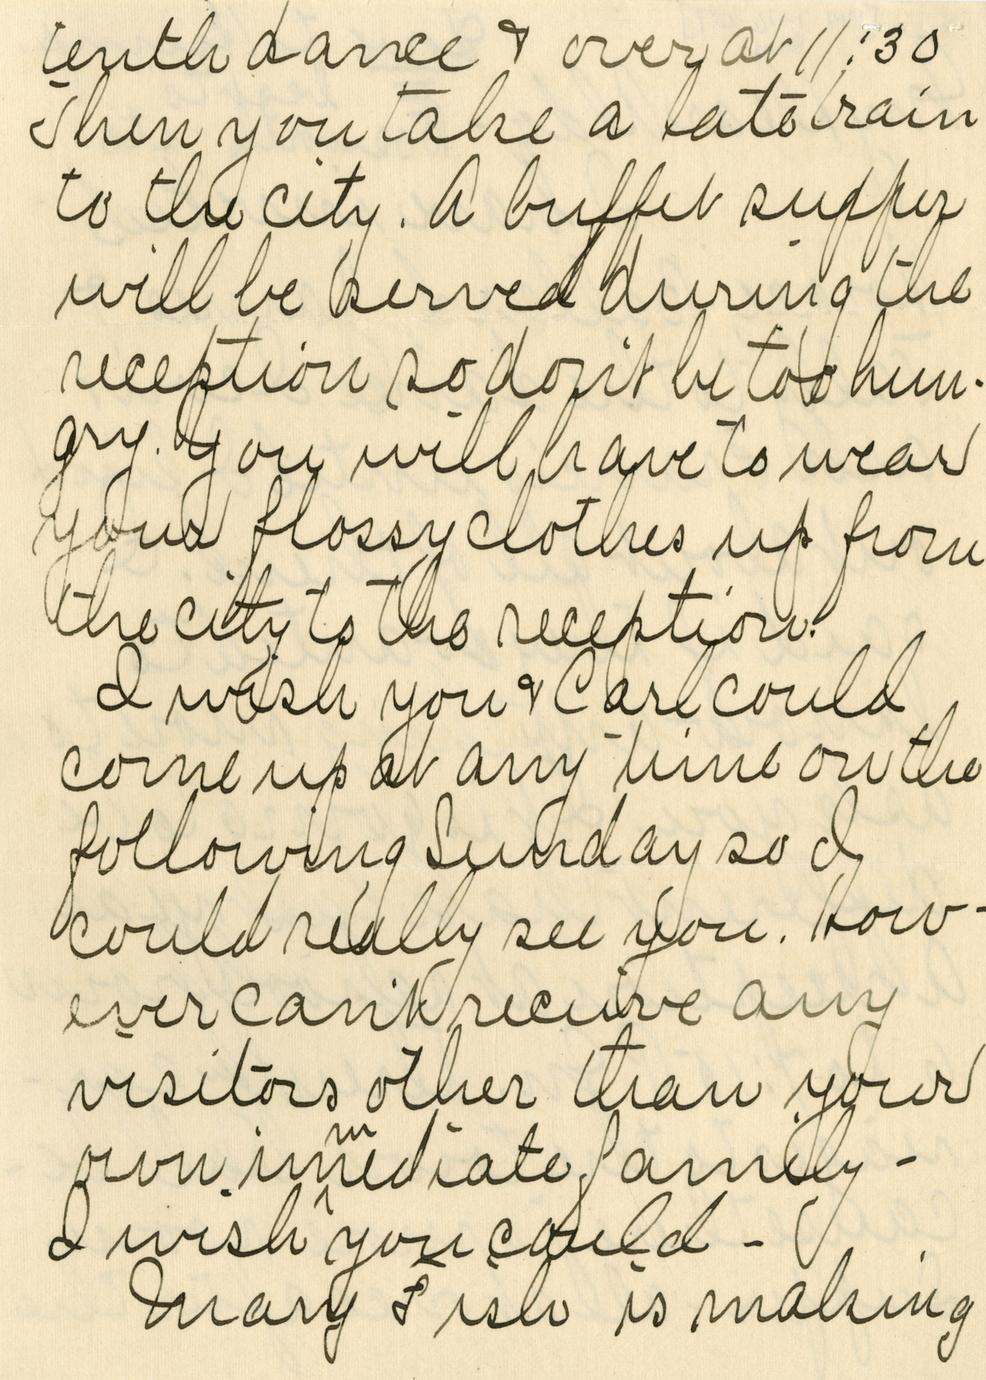 tenth dance & over at 11:30
Then you take a late train
to the city. A buffet supper
will be served during the
reception so don't be too hun-
gry. You will have to wear
your flossy clothes up from
the city to the reception.
I wish you & Carl could
come up at any time on the
following Sunday so I
could really see you. How-
ever can't receive any
visitors other than your
own immediate family -
I wish you could -
Mary Fish is making